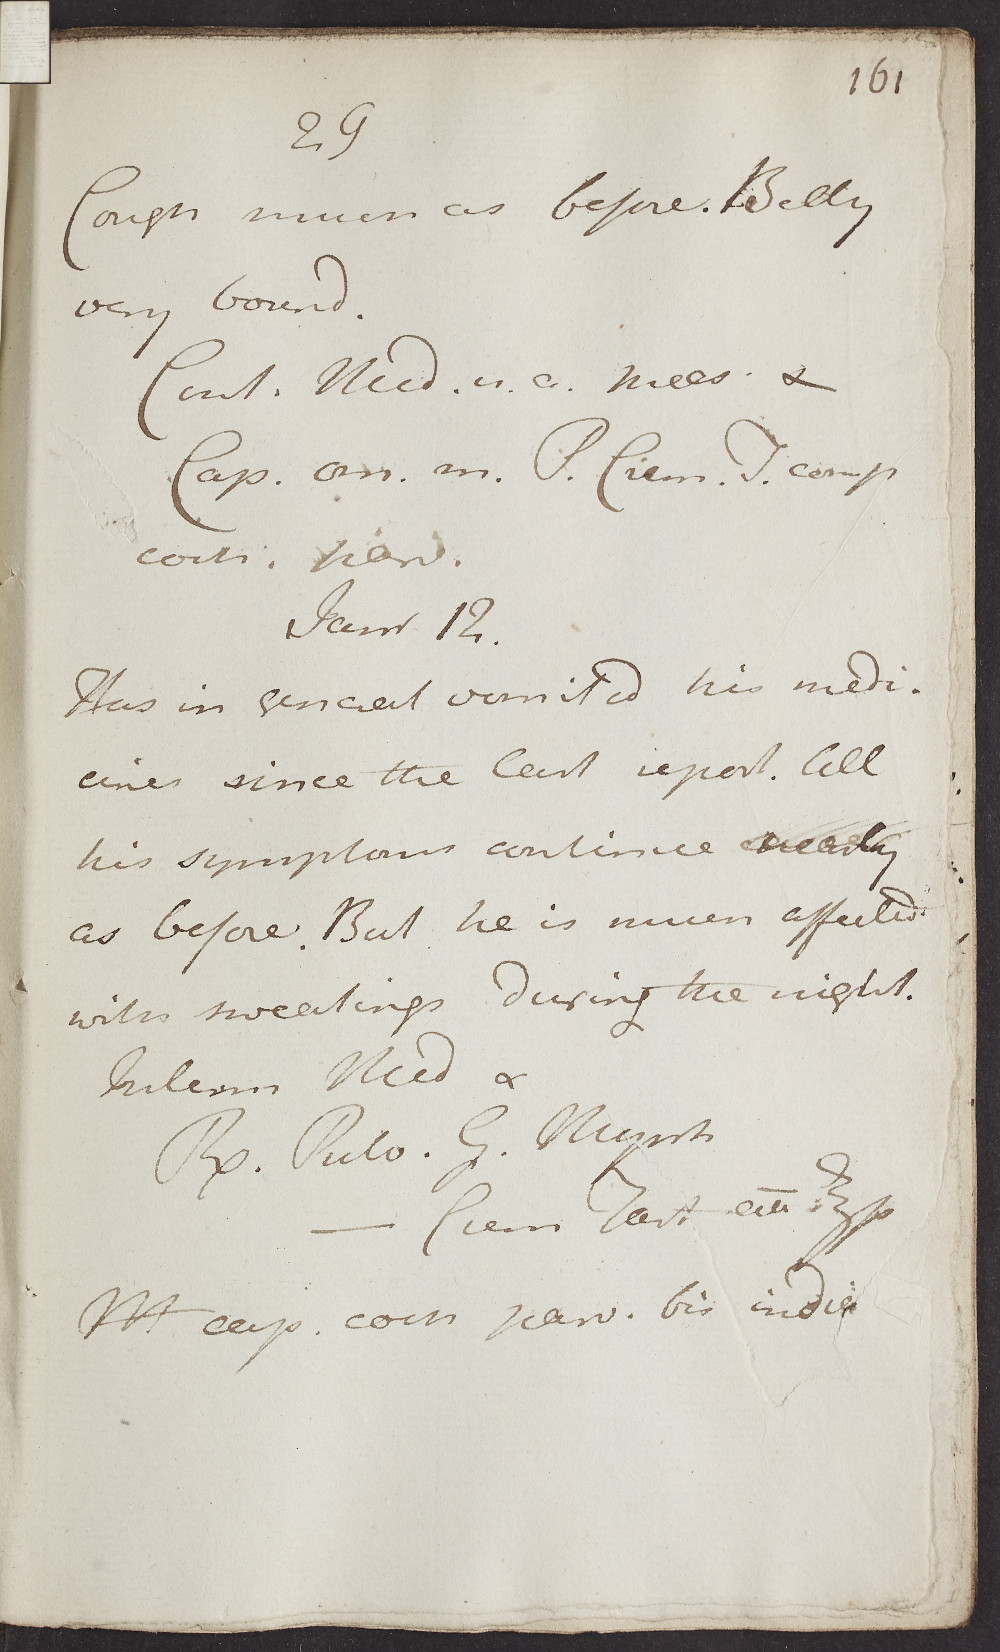 161
29
Cough much as before. Belly
very bound.
Cont. Med. u. a. mees. &
Cap. om. m. P. Crem. T. comp
coch. parv.
Janr 12.
Has in general vomited his medi-
cines since the last report. All
his symptoms continue nearly
as before. But he is much affected
with sweatings during the night.
Interm Med &
Rx. Pulv. G. Myrrh
— Crem Tart aa ℥ſs
M cap. coch parv. bis indie